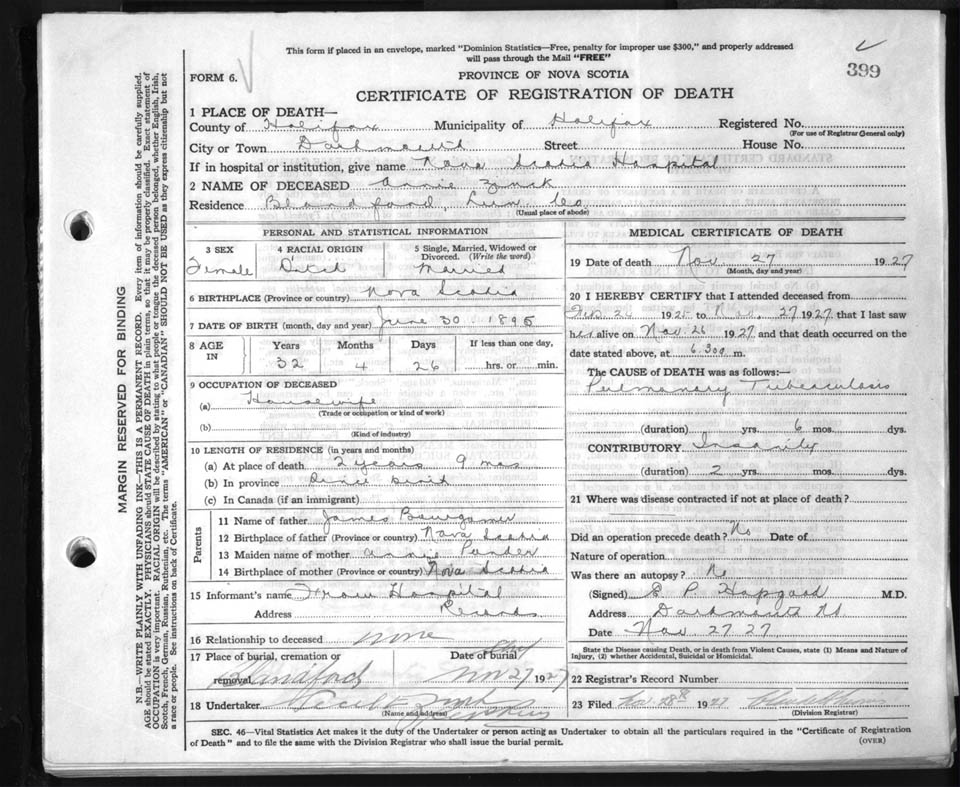 This form if placed in an envelope, marked "Dominion Statistics—Free, penalty for improper use $300," and properly addressed
will pass through the Mail "FREE"
FORM 6.
PROVINCE OF NOVA SCOTIA
399
CERTIFICATE OF REGISTRATION OF DEATH
1 PLACE OF DEATH—
County of Halifax Municipality of Halifax Registered No.
(For use of Registrar General only)
City or Town Dartmouth Street House No.
If in hospital or institution, give name Nova Scotia Hospital
2 NAME OF DECEASED Annie Zink
Residence Blandford, Lun. Co.
(Usual place of abode)
PERSONAL AND STATISTICAL INFORMATION
3 SEX 4 RACIAL ORIGIN 5 Single, Married, Widowed or
Divorced. (Write the word)
Female Dutch Married
6 BIRTHPLACE (Province or country) Nova Scotia
7 DATE OF BIRTH (month, day and year) June 30 1895
8 AGE IN Years Months Days If less than one day,
32 4 26 hrs. or min.
9 OCCUPATION OF DECEASED
(a) Housewife
(Trade or occupation or kind of work)
(b)
(Kind of industry)
10 LENGTH OF RESIDENCE (in years and months)
(a) At place of death 2 years 9 mos
(b) In province Since birth
(c) In Canada (if an immigrant)
Parents
11 Name of father James
12 Birthplace of father (Province or country) Nova Scotia
13 Maiden name of mother Annie
14 Birthplace of mother (Province or country) Nova Scotia
15 Informant's name From Hospital
Address Records
16 Relationship to deceased none
17 Place of burial, cremation or Date of burial
removal Blandford Nov 27 1927
18 Undertaker
(Name and address)
MEDICAL CERTIFICATE OF DEATH
19 Date of death Nov. 27 1927
(Month, day and year)
20 I HEREBY CERTIFY that I attended deceased from
Feb. 26 1925 to Nov. 27 1927 that I last saw
her alive on Nov 26 1927 and that death occurred on the
date stated above, at 6.30 a m.
The CAUSE of DEATH was as follows:—
Pulmonary Tuberculosis
(duration) yrs. 6 mos. dys.
CONTRIBUTORY Insanity
(duration) 2 yrs. mos. dys.
21 Where was disease contracted if not at place of death?
Did an operation precede death? No Date of
Nature of operation
Was there an autopsy? No
(Signed) E. P. Hopgood M.D.
Address Dartmouth NS
Date Nov 27 27
State the Disease causing Death, or in death from Violent Causes, state (1) Means and Nature of
Injury, (2) whether Accidental, Suicidal or Homicidal.
22 Registrar's Record Number
23 Filed Nov 28th 1927
(Division Registrar)
SEC. 46—Vital Statistics Act makes it the duty of the Undertaker or person acting as Undertaker to obtain all the particulars required in the "Certificate of Registration
of Death" and to file the same with the Division Registrar who shall issue the burial permit.
(OVER)
MARGIN RESERVED FOR BINDING
N.B.—WRITE PLAINLY WITH UNFADING INK—THIS IS A PERMANENT RECORD. Every item of information should be carefully supplied.
AGE should be stated EXACTLY. PHYSICIANS should STATE CAUSE OF DEATH in plain terms, so that it may be properly classified. Exact statement of
OCCUPATION is very important. RACIAL ORIGIN will be described by stating to what people or tongue the deceased person belonged, whether English, Irish,
Scotch, French, German, Russian, Ruthenian, etc. The terms "AMERICAN" or "CANADIAN" SHOULD NOT BE USED as they express citizenship but not
a race or people. See instructions on back of Certificate.